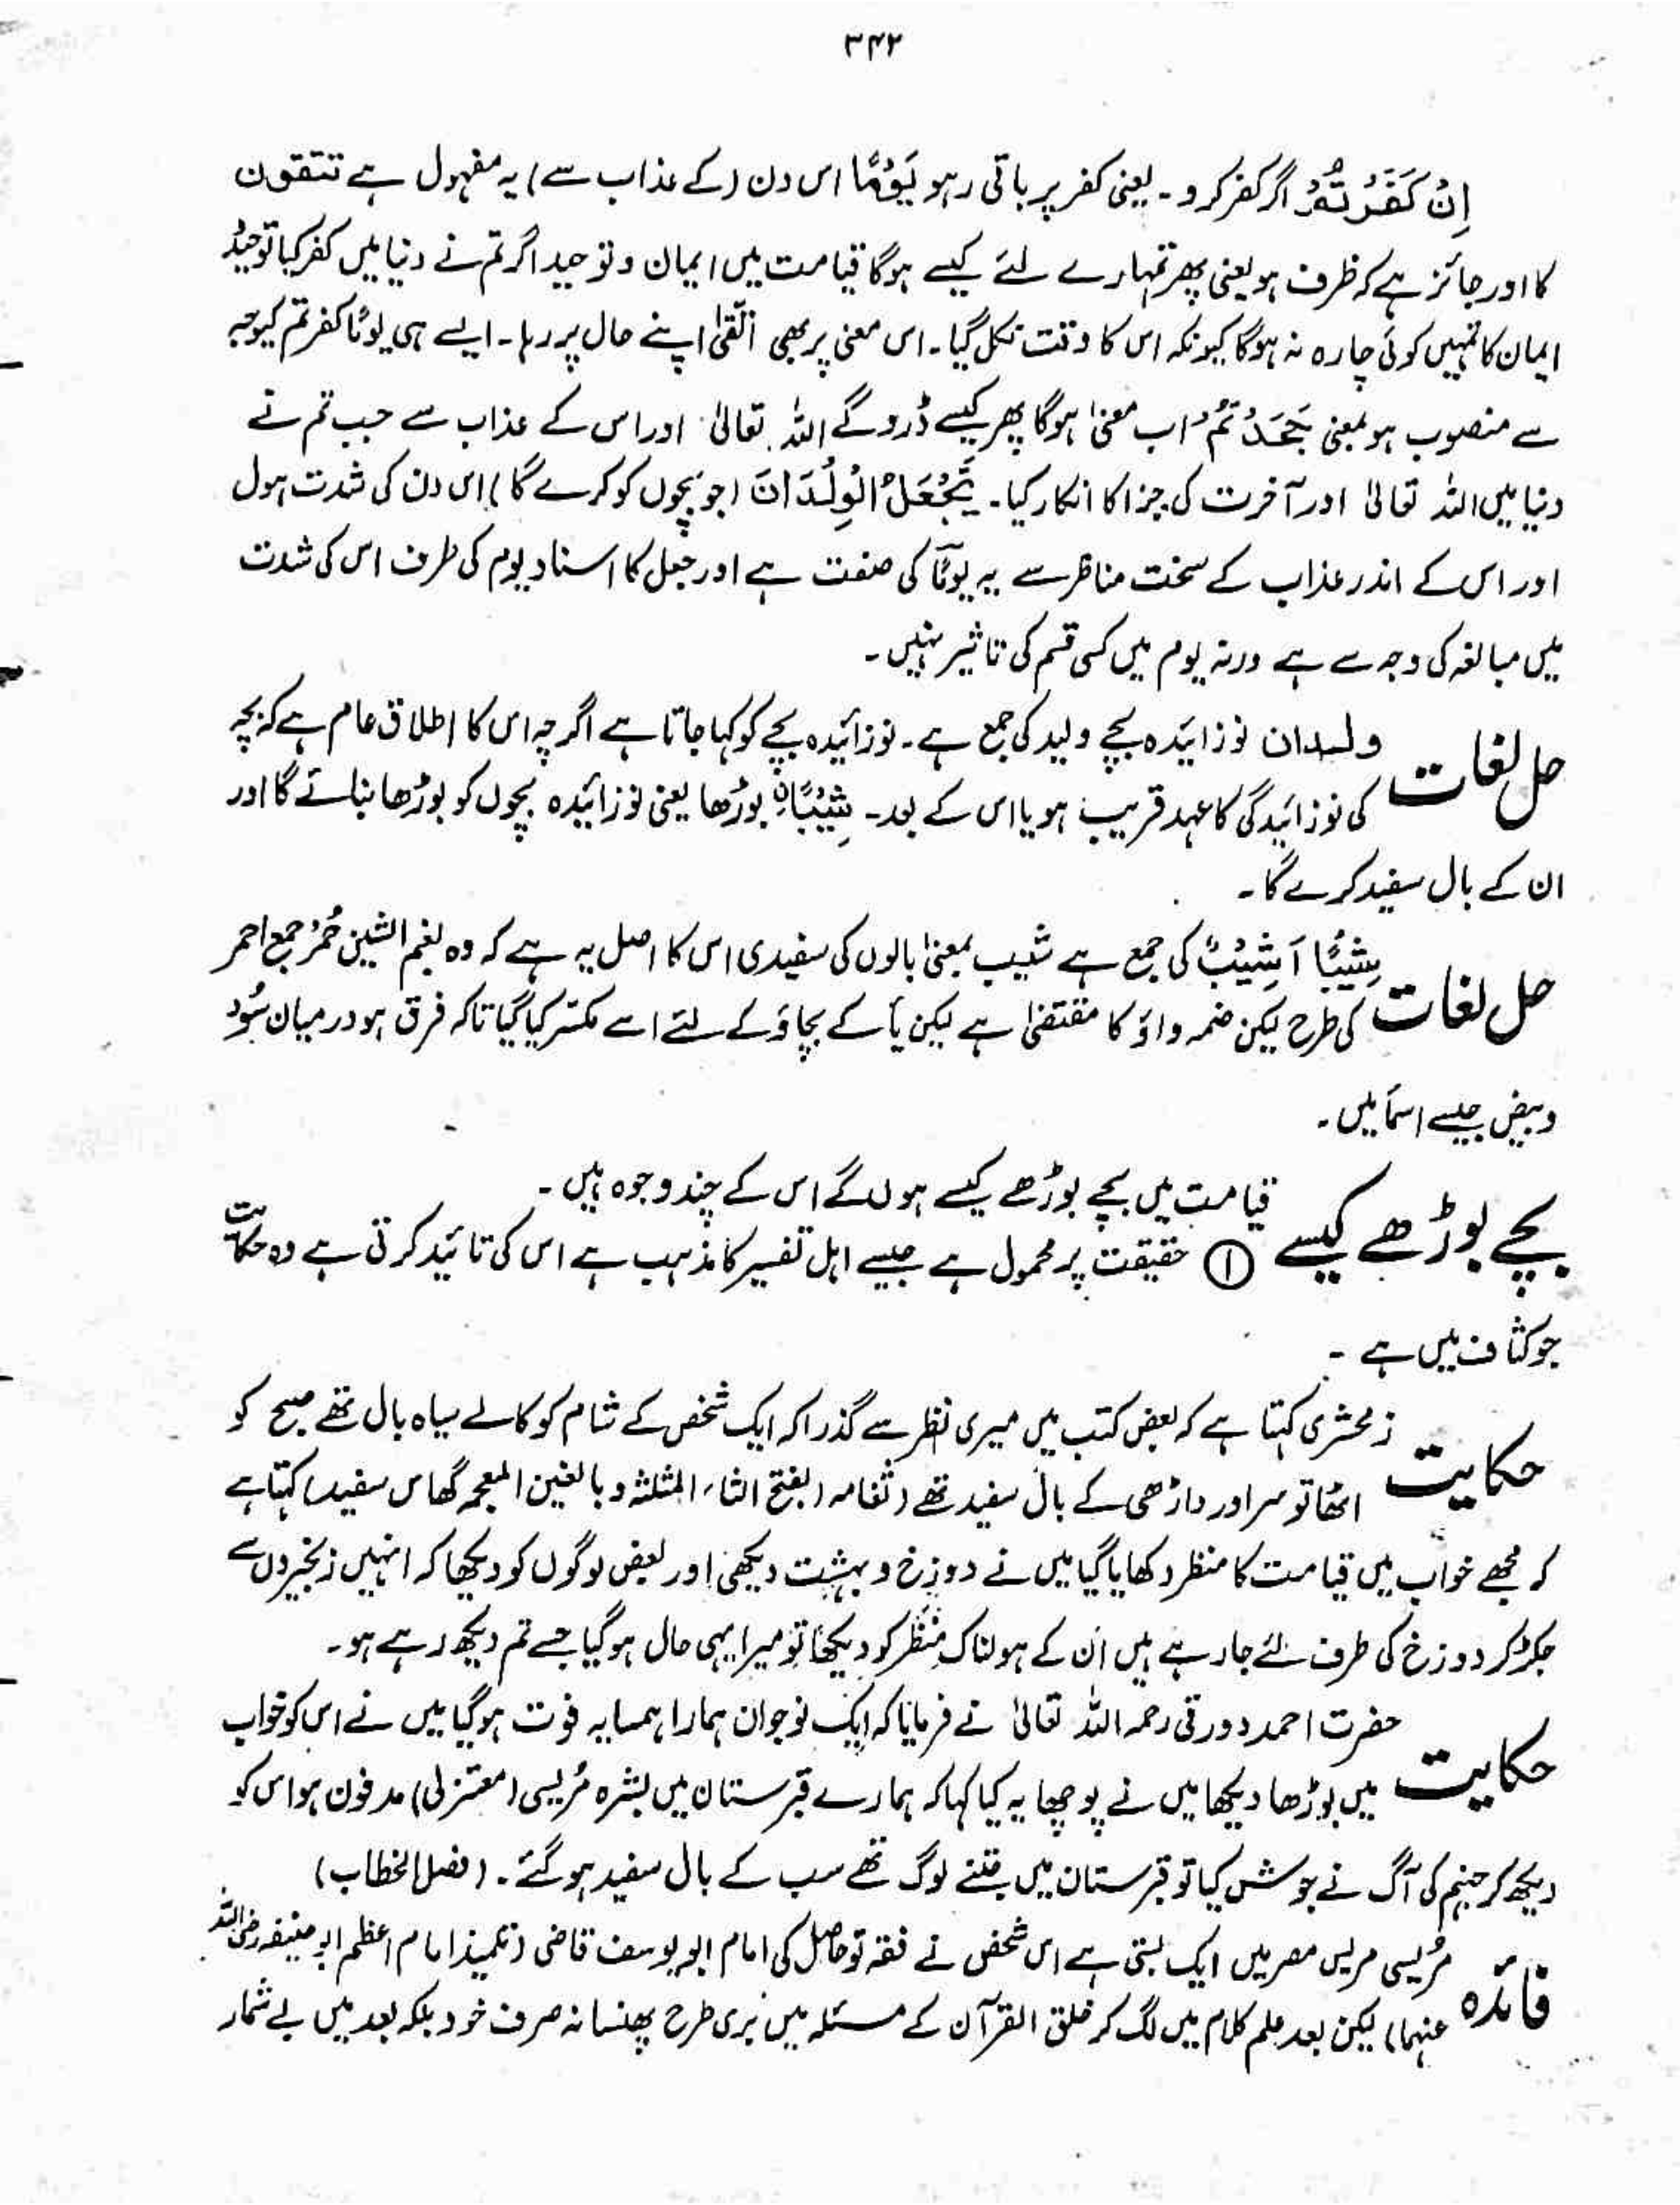 ۳۴۲
اِنْ كَفَرْتُمْ اگر کفر کرو۔ یعنی کفر پر باقی رہو يَوْمًا اس دن (کے عذاب سے) یہ مفہول ہے تتقون
کا اور جائز ہے کہ ظرف ہو یعنی پھر تمہارے لئے کیسے ہوگا قیامت میں ایمان و توحید اگر تم نے دنیا میں کفر کیا توحید و
ایمان کا تمہیں کوئی چارہ نہ ہوگا کیونکہ اس کا وقت نکل گیا۔ اس معنی پر بھی اتقیٰ اپنے حال پر رہا۔ ایسے ہی یومًا کفرتم کیوجہ
سے منصوب ہو بمعنی جَحَدْتُمْ اب معنیٰ ہوگا پھر کیسے ڈرو گے اللہ تعالیٰ اور اس کے عذاب سے جب تم نے
دنیا میں اللہ تعالیٰ اور آخرت کی جزا کا انکار کیا۔ يَّجْعَلُ الْوِلْدَانَ (جو بچوں کو کرے گا) اس دن کی شدت ہول
اور اس کے اندر عذاب کے سخت مناظر سے یہ یومًا کی صفت ہے اور جعل کا اسناد یوم کی طرف اس کی شدت
میں مبالغہ کی وجہ سے ہے ورنہ یوم میں کسی قسم کی تاثیر نہیں۔
حل لغات ولدان نوزائیدہ بچے ولید کی جمع ہے۔ نوزائیدہ بچے کو کہا جاتا ہے اگرچہ اس کا اطلاق عام ہے کہ بچہ
کی نوزائیدگی کا عہد قریب ہو یا اس کے بعد۔ شِيْبَا بوڑھا یعنی نوزائیدہ بچوں کو بوڑھا بنائے گا اور
ان کے بال سفید کرے گا۔
حل لغات شِيْبًا اَشْيَبْ کی جمع ہے شیب بمعنیٰ بالوں کی سفیدی اس کا اصل یہ ہے کہ وہ بضم الشین حُمْر جمع احمر
کی طرح لیکن ضمہ واؤ کا مقتضیٰ ہے لیکن یأ کے بچاؤ کے لئے اسے مکسر کیا گیا تاکہ فرق ہو درمیان سُود
و بیض جیسے اسمأ میں۔
بچے بوڑھے کیسے قیامت میں بچے بوڑھے کیسے ہوں گے اس کے چند وجوہ ہیں۔
① حقیقت پر محمول ہے جیسے اہل تفسیر کا مذہب ہے اس کی تائید کرتی ہے وہ حکایت
جو کشاف میں ہے۔
حکایت زمحشری کہتا ہے کہ بعض کتب میں میری نظر سے گذرا کہ ایک شخص کے شام کو کالے سیاہ بال تھے صبح کو
اٹھا تو سر اور داڑھی کے بال سفید تھے (ثغامہ (بفتح الثاء المثلثہ و بالغین المعجمہ گھاس سفید) کہتا ہے
کہ مجھے خواب میں قیامت کا منظر دکھایا گیا میں نے دوزخ و بہشت دیکھی اور بعض لوگوں کو دیکھا کہ انہیں زنجیروں سے
جکڑ کر دوزخ کی طرف لئے جا رہے ہیں ان کے ہولناک منظر کو دیکھا تو میرا یہی حال ہو گیا جسے تم دیکھ رہے ہو۔
حکایت حضرت احمد دورقی رحمہ اللہ تعالیٰ نے فرمایا کہ ایک نوجوان ہمارا ہمسایہ فوت ہو گیا میں نے اس کو خواب
میں بوڑھا دیکھا میں نے پوچھا یہ کیا کہا کہ ہمارے قبرستان میں بشرہ مُریسی (معتزلی) مدفون ہوا اس کو
دیکھ کر جہنم کی آگ نے جوش کیا تو قبرستان میں جتنے لوگ تھے سب کے بال سفید ہو گئے۔ (فصل الخطاب)
فائدہ مُریسی مریس مصر میں ایک بستی ہے اس شخص نے فقہ تو حاصل کی امام ابو یوسف قاضی (تلمیذ امام اعظم ابو حنیفہ رضی اللہ
عنہما) لیکن بعد علم کلام میں لگ کر خلق القرآن کے مسئلہ میں بری طرح پھنسا نہ صرف خود بلکہ بعد میں بے شمار